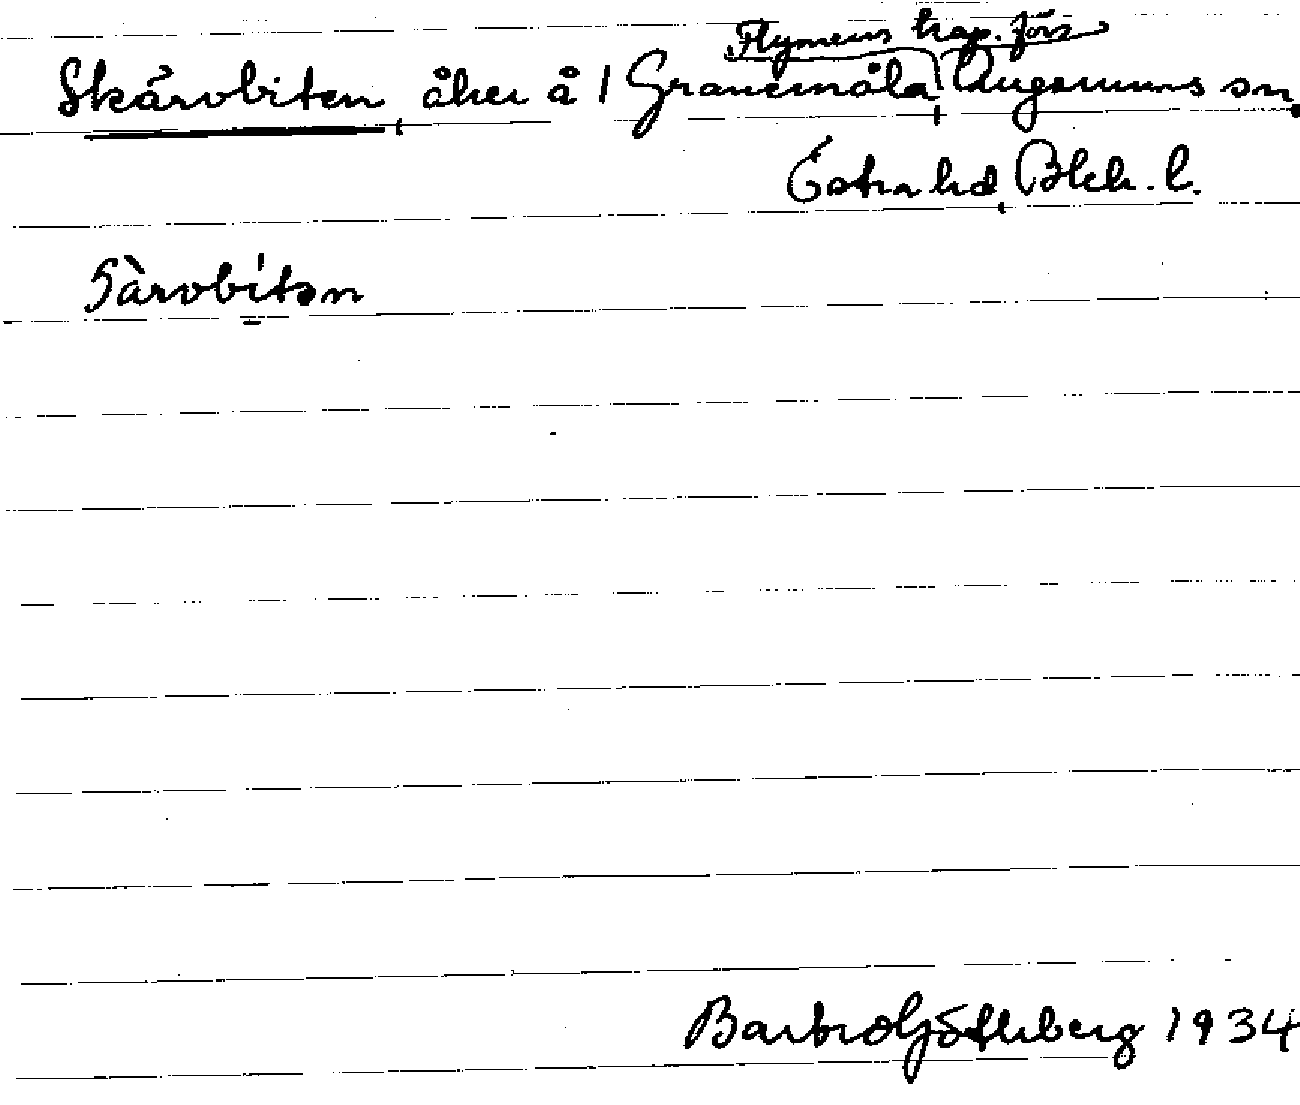 Flymens kap. förs
Skärvbiten, åker å 1 Granemåla, Augerums sn,
Östra hd, Blek. l.
Barbro Göthberg 1934